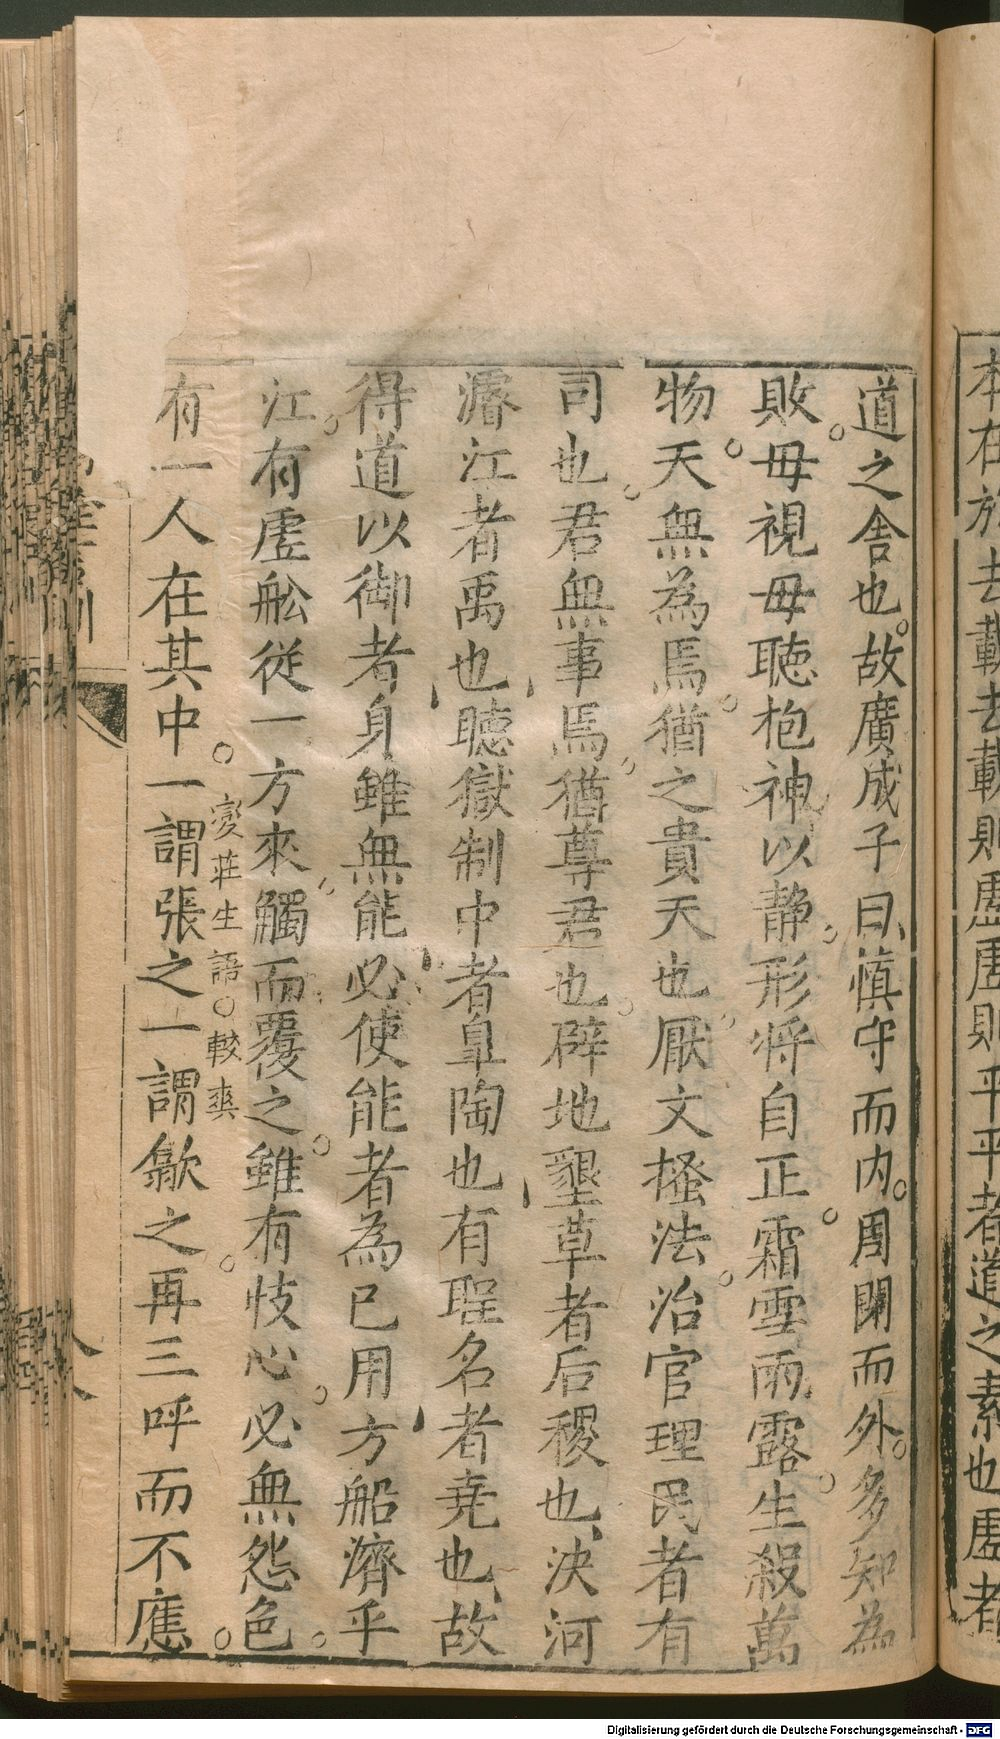 本在於去載去載則虛虛則平平者道之素也虛者
道之舍也故廣成子曰慎守而內周閉而外多知為
敗毋視毋聽抱神以静形将自正霜雪雨露生殺萬
物天無為焉猶之貴天也厭文搔法治官理民者有
司也君無事焉猶尊君也辟地墾草者后稷也决河
濬江者禹也聴獄制中者皐陶也有聖名者堯也故
得道以御者身雖無能必使能者為已用方船濟乎
江有虛舩從一方來觸而覆之雖有忮心必無怨色
有一人在其中一謂張之一謂歙之再三呼而不應
變莊生語〇較爽
Digitalisierung gefördert durch die Deutsche Forschungsgemeinschaft - DFG